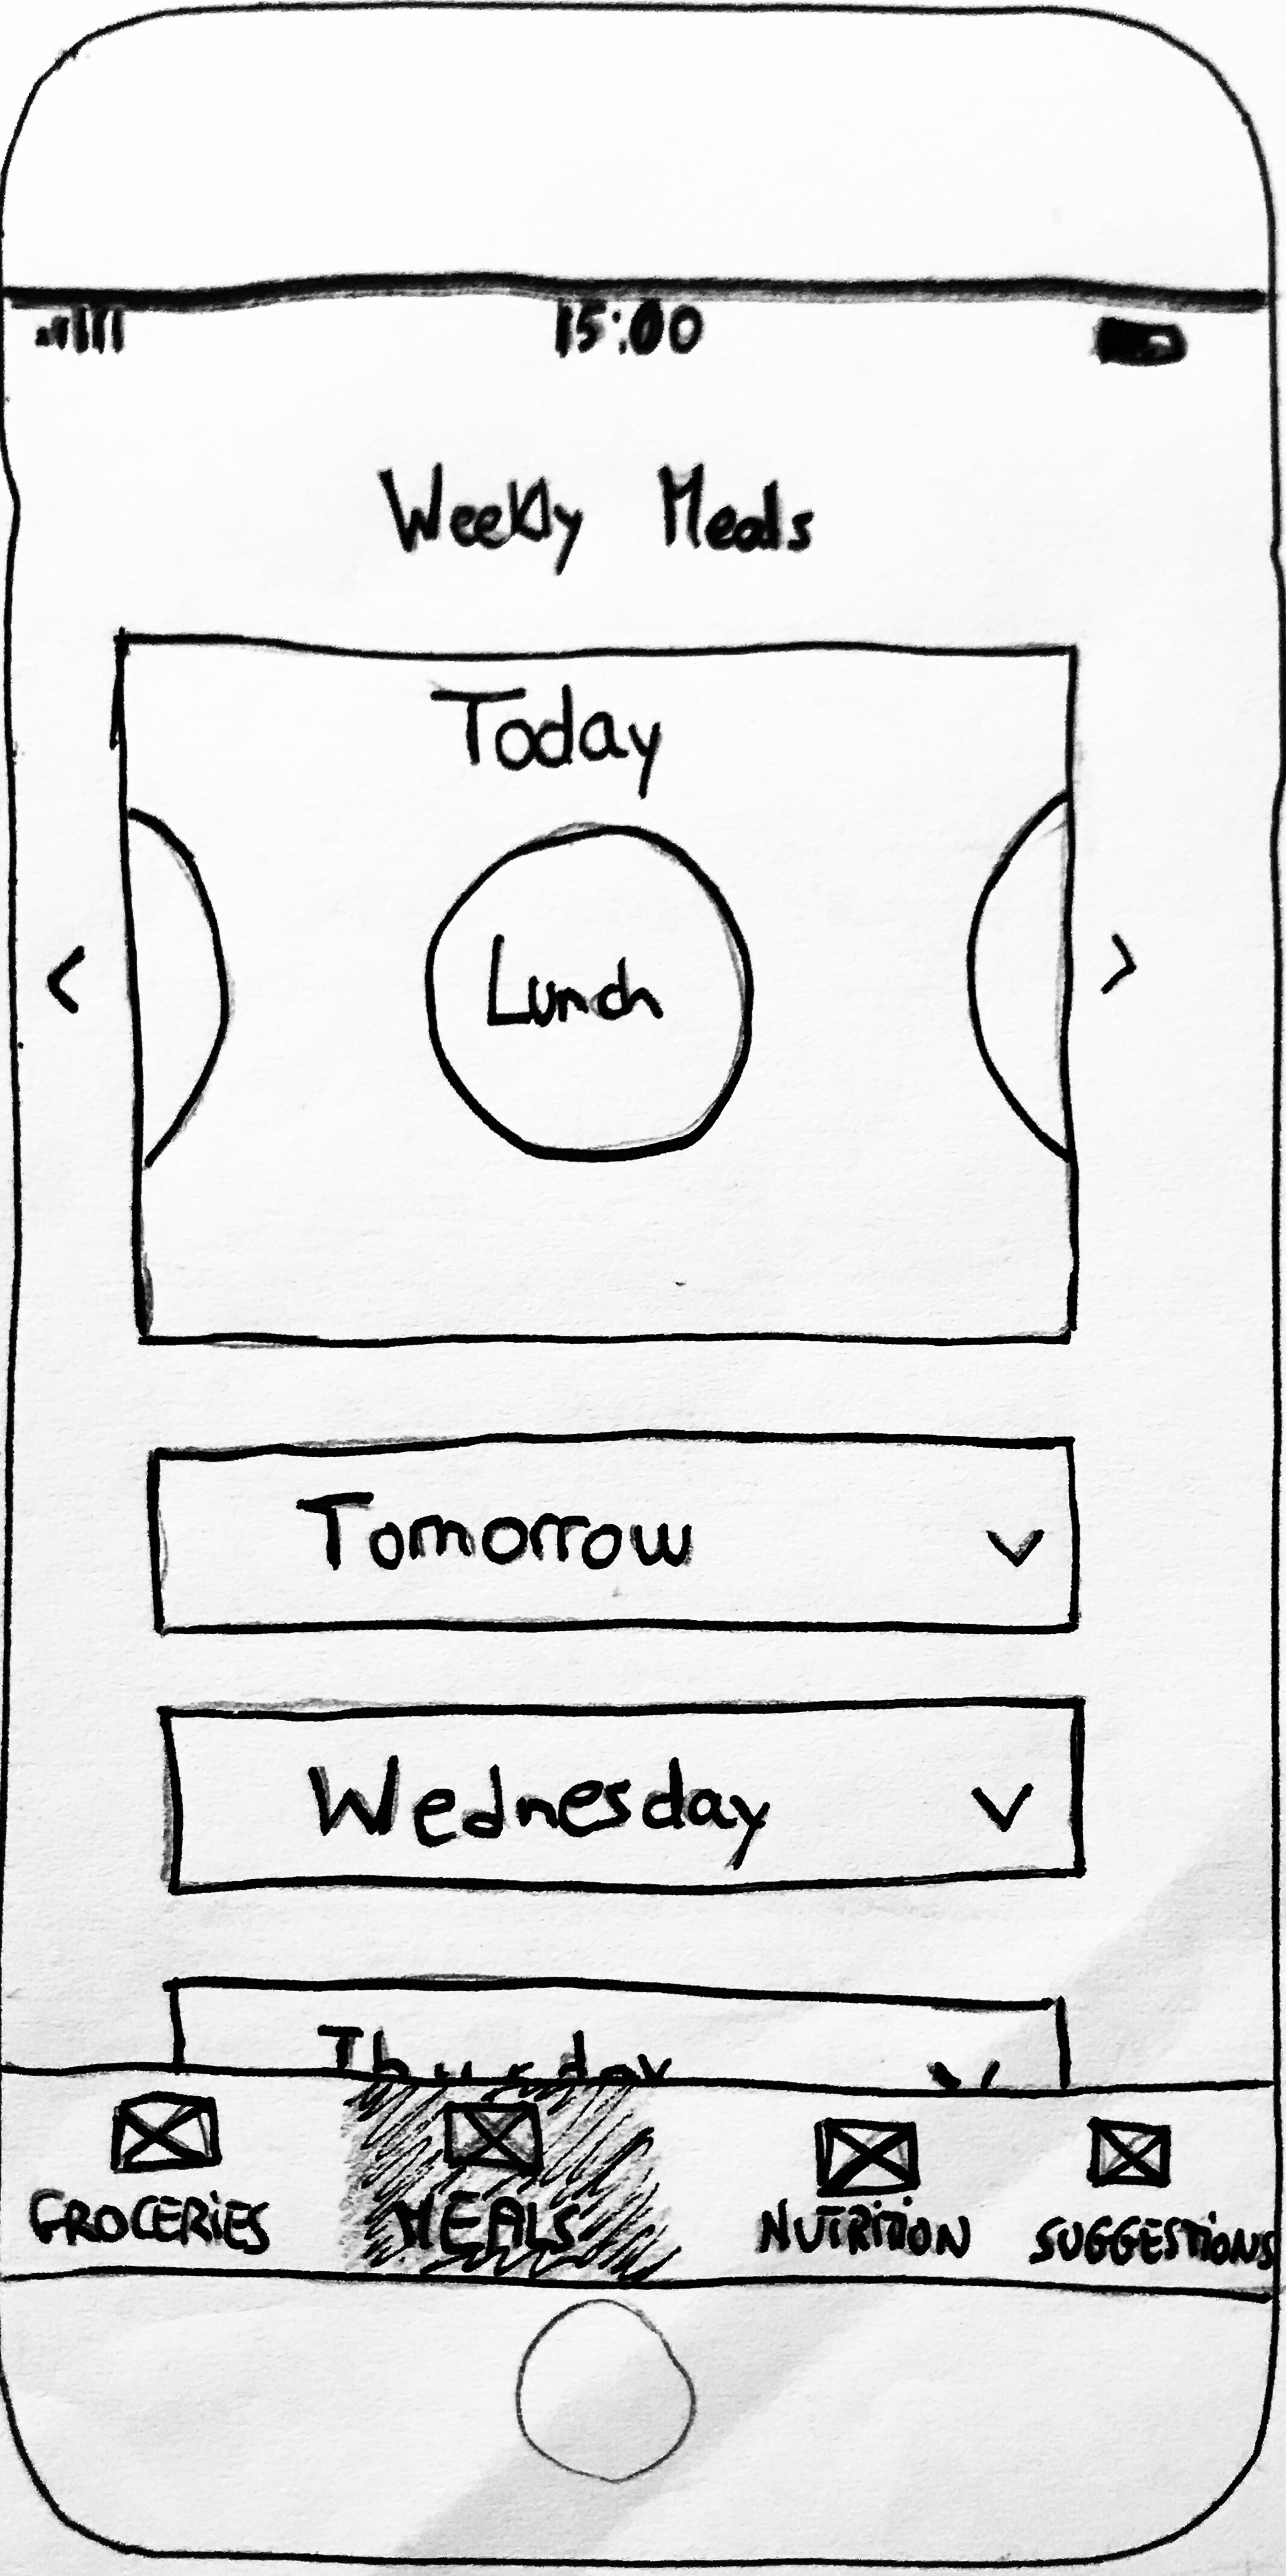 15:00
Weekly Meals
Today
Lunch
Tomorrow
Wednesday
Thursday
GROCERIES MEALS NUTRITION SUGGESTIONS